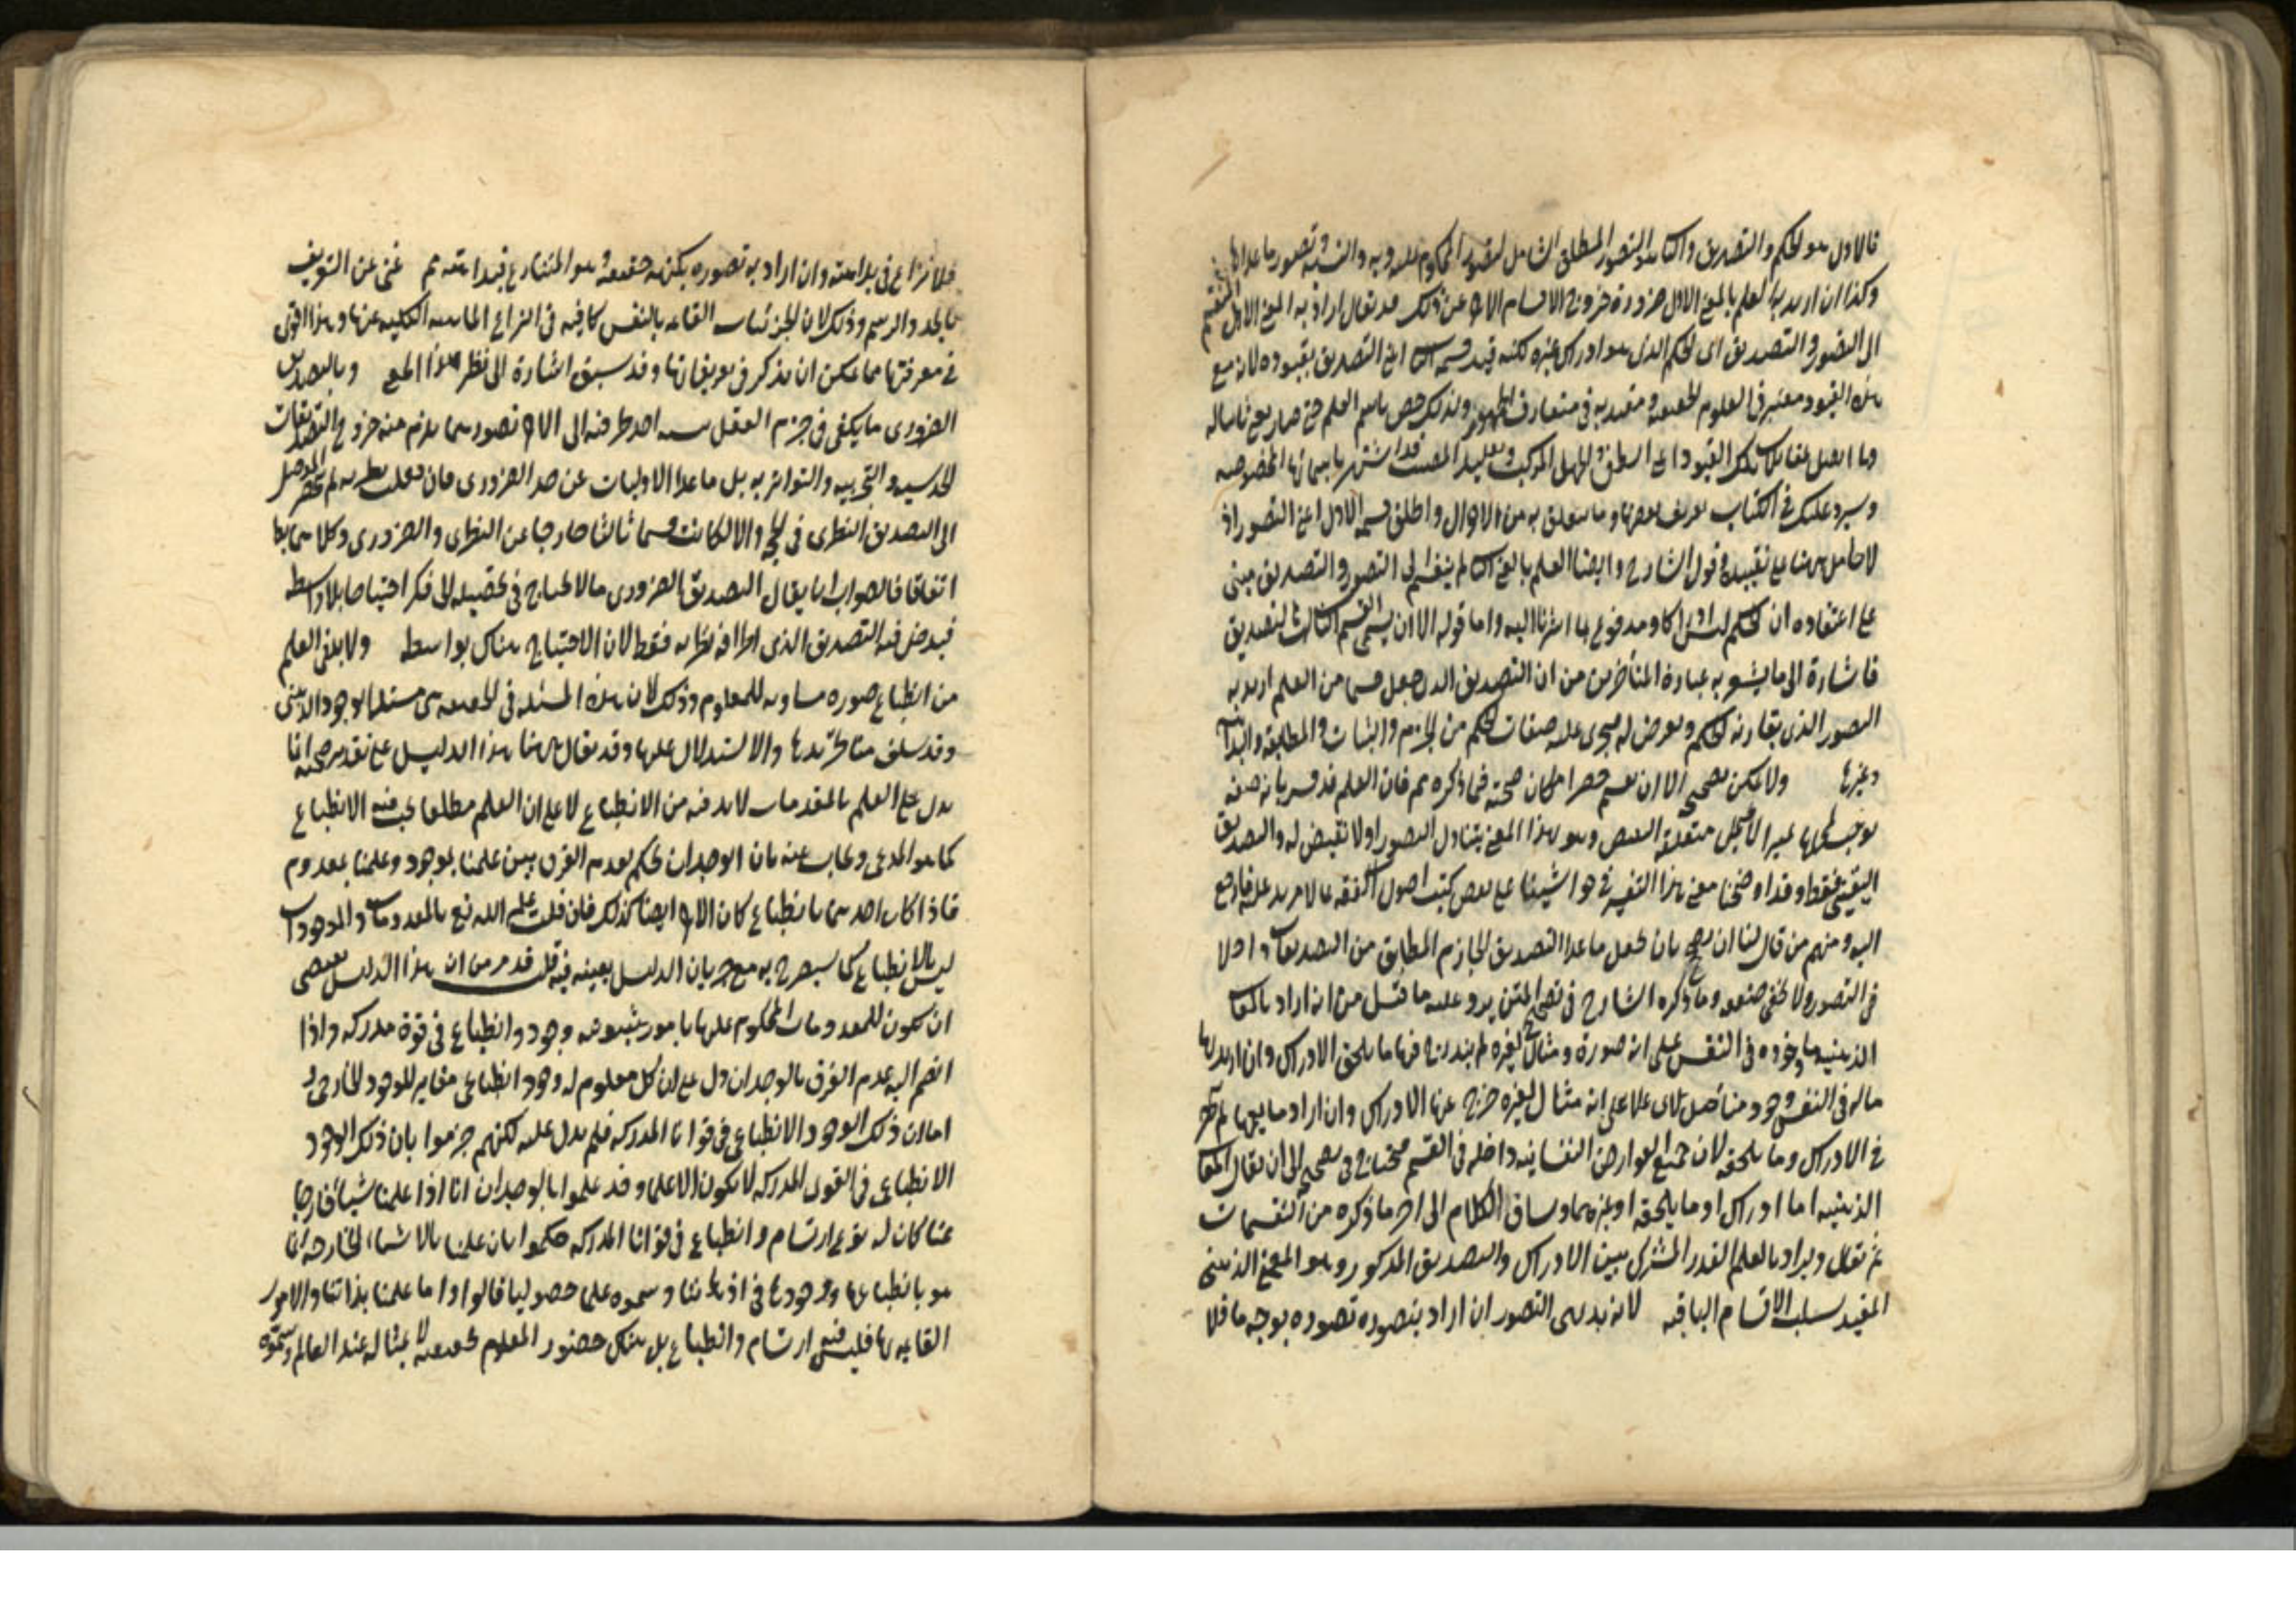 فالاول هو الحكم والتصديق والثانى هو التصور المطلق الشامل لتصور المحكوم عليه وبه والنسبة وتصور ما عداها
وكذا ان اريد بالعلم المعنى الاول ضرورة خروج الاقسام الاخر عن ذلك قد يقال اراد به المعنى الاول المنقسم
الى التصور والتصديق اى الحكم الذى هو ادراك عنده لكنه قيد قسمه الثانى اعنى التصديق بقيوده لان مع
هذه القيود معتبر فى العلوم الحقيقية ومعتد به فى متعارف الجمهور ولذلك خص باسم العلم حتى صار
وما يقابل تلك القيود اعنى الظن والجهل المركب وتقليد المصيب قد اشتهر باسمائها المخصوصة
وسيرد عليك فى الكتاب تعريف بعضها وما يتعلق به من الاحوال واطلق قسمه الاول اعنى التصور اذ
لا حامل ههنا على تقييده وقول الشارح وايضا العلم بالمعنى الثانى لم ينقسم الى التصور والتصديق مبنى
على اعتقاده ان الحكم ليس ادراكا ومدفوع بما اشرنا اليه واما قوله الا ان يسمى القسم الثالث بالتصديق
فاشارة الى ما يشعر به عبارة المتأخرين من ان التصديق الذى جعل قسما من العلم اريد به
التصور الذى يقارنه الحكم ويعرض له فيجرى عليه صفات الحكم من الجزم والثبات والمطابقة والبداهة
وغيرها ولا يمكن تصحيح الا ان امكان صحته فيما ذكره مم فان العلم قد فسر بانه صفة
توجب لمحلها تمييزا لا يحتمل متعلقه النقيض وهو بهذا المعنى يتناول التصور اذ لا نقيض له والتصديق
اليقينى فقط وقد اوضحنا معنى هذا التفسير فى حواشينا على بعض كتب اصول الفقه بما لا مزيد عليه فارجع
اليه ومنهم من قال لنا ان بان نجعل ما عدا التصديق الجازم المطابق من التصديقات داخلا
فى التصور ولا يخفى ضعفه وما ذكره الشارح فى تصحيح المتن يرد عليه ما قيل من انه ان اراد بالمعانى
الذهنية ما وجوده فى النفس على انه صورة ومثال لغيره لم يندرج فيها ما يلحق الادراك وان اريد بها
ما له فى النفس وجود متأصل لا على انه مثال لغيره خرج عنها الادراك وان اراد ما يعمهما لم ينحصر
فى الادراك وما يلحقه لان جميع العوارض النفسانية داخلة فى القسم فيحتاج فى تصحيحه الى ان يقال المعانى
الذهنية اما ادراك او ما يلحقه او غيرهما وساق الكلام الى اخر ما ذكره من التقسيمات
ثم يقال ويراد بالعلم القدر المشترك بين الادراك والتصديق المذكور وهو المعنى الذهنى
المقيد بسلب الاقسام الباقية لانه بديهى التصور ان اراد بتصوره تصوره بوجه ما فلا
فلا نزاع فى بداهته وان اراد به تصوره بكنه حقيقته وهو المتنازع فيه فبداهته مم غنى عن التعريف
بالحد والرسم وذلك لان الجزئيات القائمة بالنفس كافية فى انتزاع الماهية الكلية عنها وهذا اقوى
فى معرفتها مما يمكن ان يذكر فى تعريفاتها وقد سبق اشارة الى نظير هذا المعنى وبالتصديق
الضرورى ما يكفى فى جزم العقل بنسبة احد طرفيه الى الاخر تصورهما يلزم منه خروج التصديقات
الحدسية والتجربية والتواترية بل ما عدا الاوليات عن حد الضرورى فان جعلت نظرية لم ينحصر الموصل
الى التصديق النظرى فى الحجة والا لكانت قسما ثالثا خارجا عن النظرى والضرورى وكلاهما بط
اتفاقا فالصواب ان يقال التصديق الضرورى ما لا يحتاج فى تحصيله الى فكر احتياجا بلا واسطة
فيدخل فيه التصديق الذى اطرافه نظرية فقط لان الاحتياج هناك بواسطة ولا بد فى العلم
من انطباع صورة مساوية للمعلوم وذلك لان هذه المسئلة فى الحقيقة هى مسئلة الوجود الذهنى
وقد سلف منا تحريرها والاستدلال عليها وقد يقال ههنا هذا الدليل على تقدير صحته انما
يدل على العلم بالمعدومات لا بد فيه من الانطباع لا على ان العلم مطلقا يجب فيه الانطباع
كما هو المدعى ويجاب عنه بان الوجدان يحكم بعدم الفرق بين علمنا بموجود وعلمنا بمعدوم
فاذا كان احدهما بانطباع كان الاخر ايضا كذلك فان قلت علم الله تع بالمعدومات والموجودات
ليس بالانطباع كما سيصرح به مع جريان الدليل بعينه فيه قلت قد مر من ان هذا الدليل يقتضى
ان يكون للمعدومات المحكوم عليها بامور ثبوتية وجود وانطباع فى قوة مدركة واذا
انضم اليه عدم الفرق بالوجدان دل على ان كل معلوم له وجود انطباعى مغاير للوجود الخارجى و
اما ان ذلك الوجود الانطباعى فى قوانا المدركة فلم يدل عليه لكنهم جزموا بان ذلك الوجود
الانطباعى فى القوى المدركة لا يكون الا علما وقد علموا بالوجدان انا اذا علمنا شيئا خارجا
عنا كان له نوع ارتسام وانطباع فى قوانا المدركة حكموا بان علمنا بالاشياء الخارجة انما
هو بانطباعها ووجودها فى اذهاننا وسموه علما حصوليا قالوا واما علمنا بذاتنا والامور
القائمة بها فليس فيه ارتسام وانطباع بل هناك حضور المعلوم بحقيقته لا بمثاله عند العالم وسموه